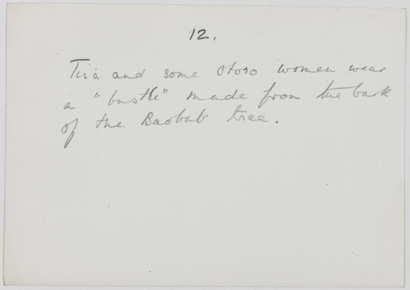 12.
Tira and some Otoro women wear
a "bustle" made from the bark
of the Baobab tree.